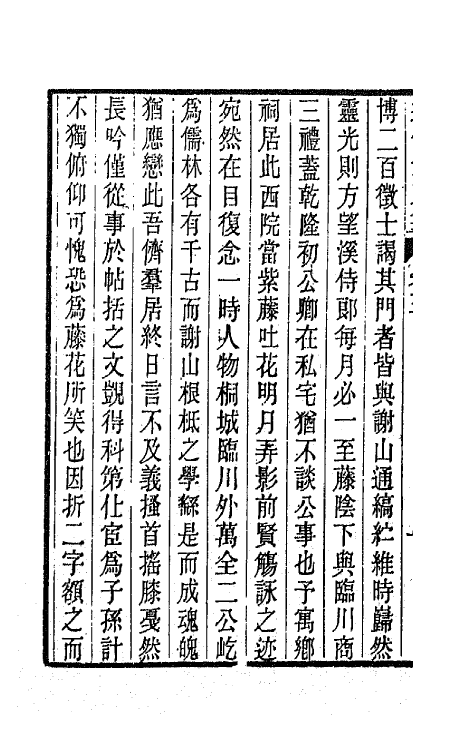 博二百徵士謁其門者皆與謝山通縞紵維時巋然
靈光則方望溪侍郎每月必一至藤陰下與臨川商
三禮蓋乾隆初公卿在私宅猶不談公事也予寓鄉
祠居此西院當紫藤吐花明月弄影前賢觴詠之迹
宛然在目復念一時人物桐城臨川外萬全二公屹
為儒林各有千古而謝山根柢之學繇是而成魂魄
猶應戀此吾儕羣居終日言不及義搔首搖膝戞然
長吟僅從事於帖括之文覬得科第仕宦為子孫計
不獨俯仰可愧恐為藤花所笑也因折二字額之而